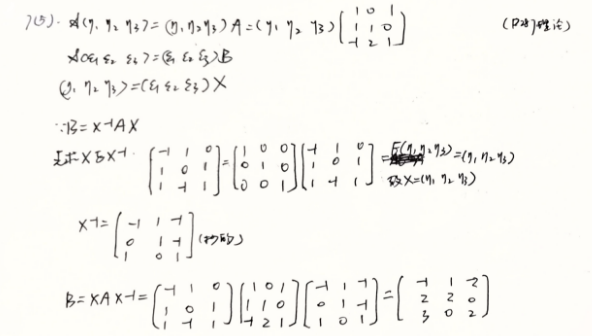 7(5). A(η₁ η₂ η₃)=(η₁ η₂ η₃)A=(η₁ η₂ η₃) [1 0 1; 1 1 0; -1 2 1]
A(ε₁ ε₂ ε₃)=(ε₁ ε₂ ε₃)B
(η₁ η₂ η₃)=(ε₁ ε₂ ε₃)X
∵B=X⁻¹AX
先求X及X⁻¹. [-1 1 0; 1 0 1; 1 -1 1] = [1 0 0; 0 1 0; 0 0 1] [-1 1 0; 1 0 1; 1 -1 1] = E(η₁ η₂ η₃)=(η₁ η₂ η₃)
故X=(η₁ η₂ η₃)
X⁻¹= [-1 1 -1; 0 1 -1; 1 0 1]
B=XAX⁻¹= [-1 1 0; 1 0 1; 1 -1 1] [1 0 1; 1 1 0; -1 2 1] [-1 1 -1; 0 1 -1; 1 0 1] = [-1 1 -2; 2 2 0; 3 0 2]